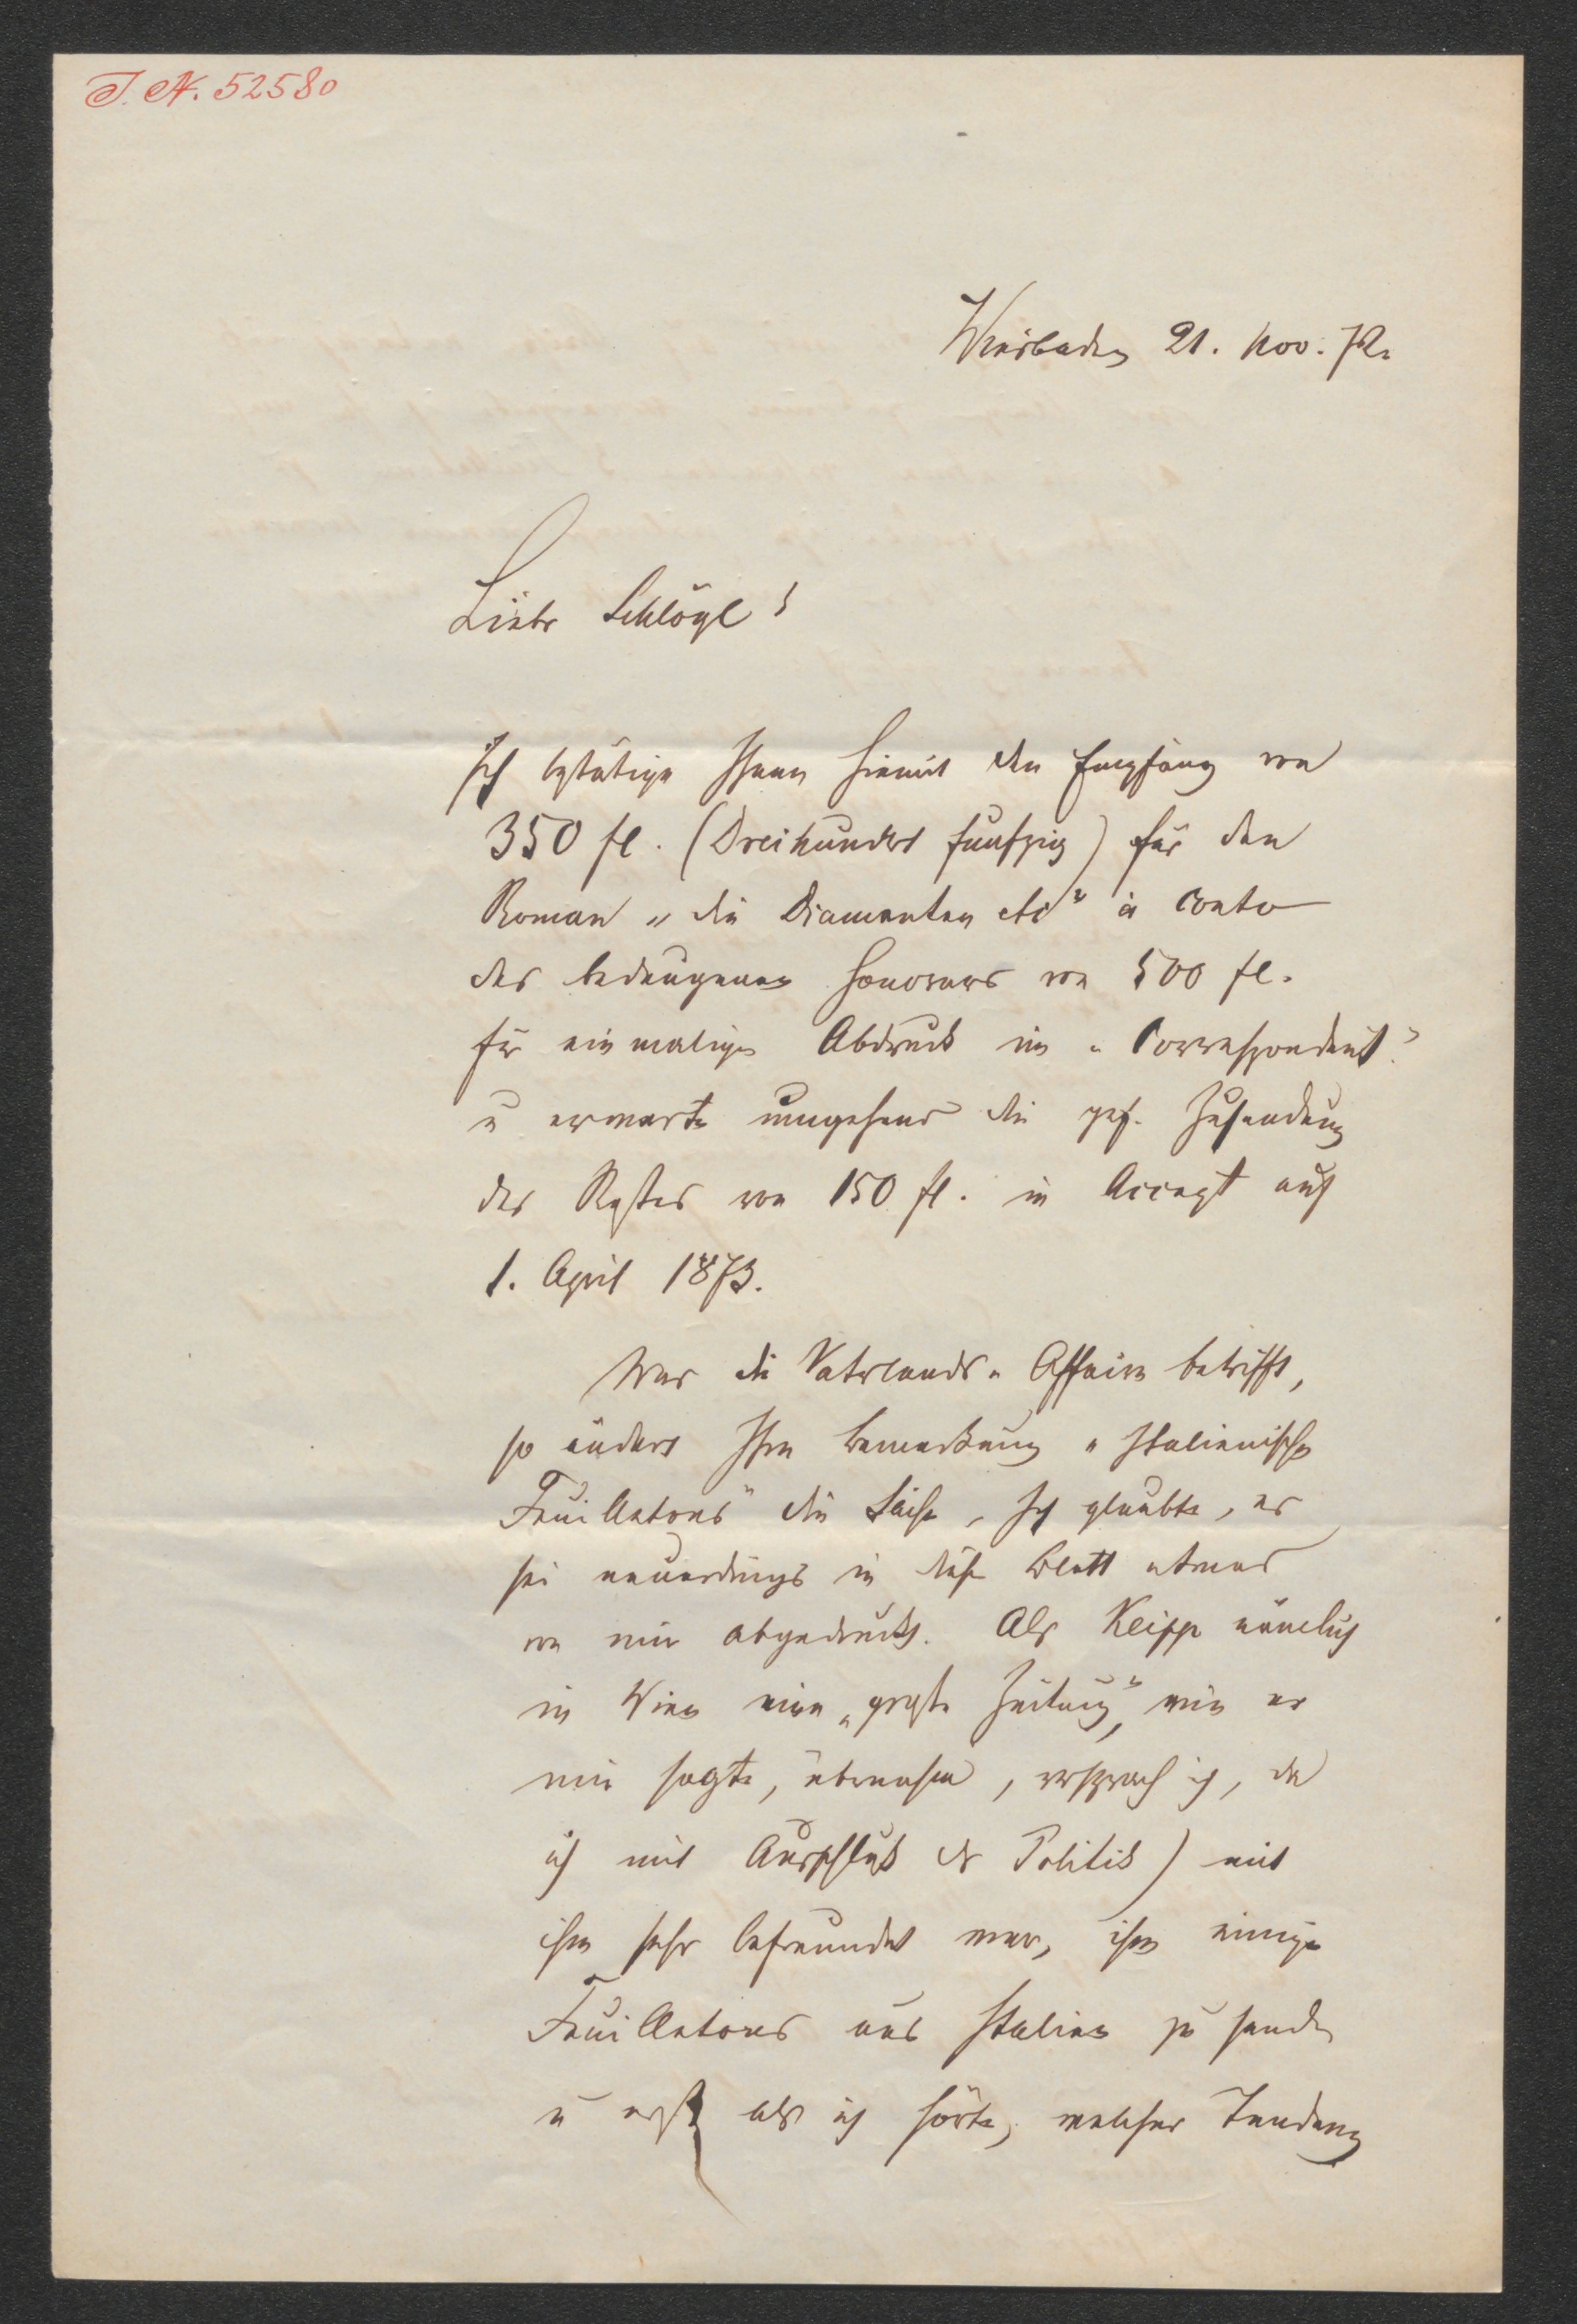 I. N. 52580
Wiesbaden 21. Nov. 72.
Lieber Schlögl!
Ich bestätige Ihnen hiemit den Empfang von
350 fl. (Dreihundert fünfzig) für den
Roman „die Diamanten etc“ à Conto
des bedungenen Honorars von 500 fl.
für einmaligen Abdruck im „Correspondent“
u erwarte umgehend die gef. Zusendung
des Restes von 150 fl. in Accept auf
1. April 1873.
Was die Vaterlands-Affaire betrifft,
so ändert Ihre Bemerkung „Italienische
Feuilletons“ die Sache, Ich glaubte, es
sei neuerdings in diese Blatt etwas
von mir abgedruckt. Als Klipp nämlich
in Wien eine „große Zeitung“, wie er
mir sagte, übernahm, versprach ich, da
ich mit Ausschluß der Politik) mit
ihm sehr befreundet war, ihm einige
Feuilletons aus Italien zu senden
u erst als ich hörte, welcher Tendenz